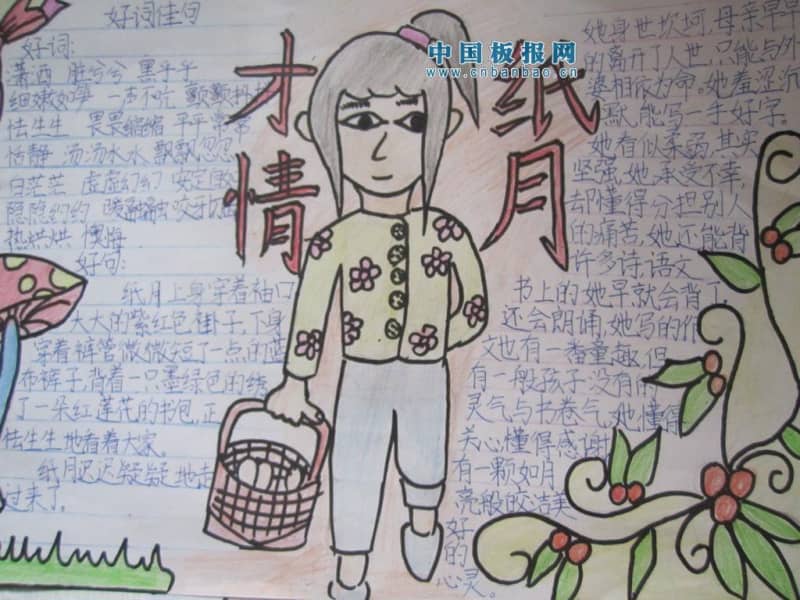 好词佳句
好词:
萧西 脏兮兮 黑乎乎
细嫩如笋 一声不吭 颤颤抖抖
怯生生 畏畏缩缩 平平常常
恬静 汤汤水水 飘飘忽忽
白茫茫 虚虚幻幻 安定
隐隐约约 暖融融 咬牙
热烘烘 懊悔
好句:
纸月上身穿着袖口
大大的紫红色褂子,下身
穿着裤管微微短了一点的蓝
布裤子,背着一只墨绿色的绣
了一朵红莲花的书包,正
怯生生地看着大家。
纸月迟迟疑疑地走
过来了。
才情
纸月
中国板报网
www.cnbanbao.cn
她身世坎坷,母亲早早
的离开了人世,只能与外
婆相依为命。她羞涩沉
默,能写一手好字。
她看似柔弱,其实
坚强,她承受不幸,
却懂得分担别人
的痛苦,她还能背
许多诗,语文
书上的她早就会背了,
还会朗诵,她写的作
文也有一番童趣,但
有一般孩子没有的
灵气与书卷气,她懂得
关心懂得感谢
有一颗如月
亮般皎洁美
好
的
心灵。